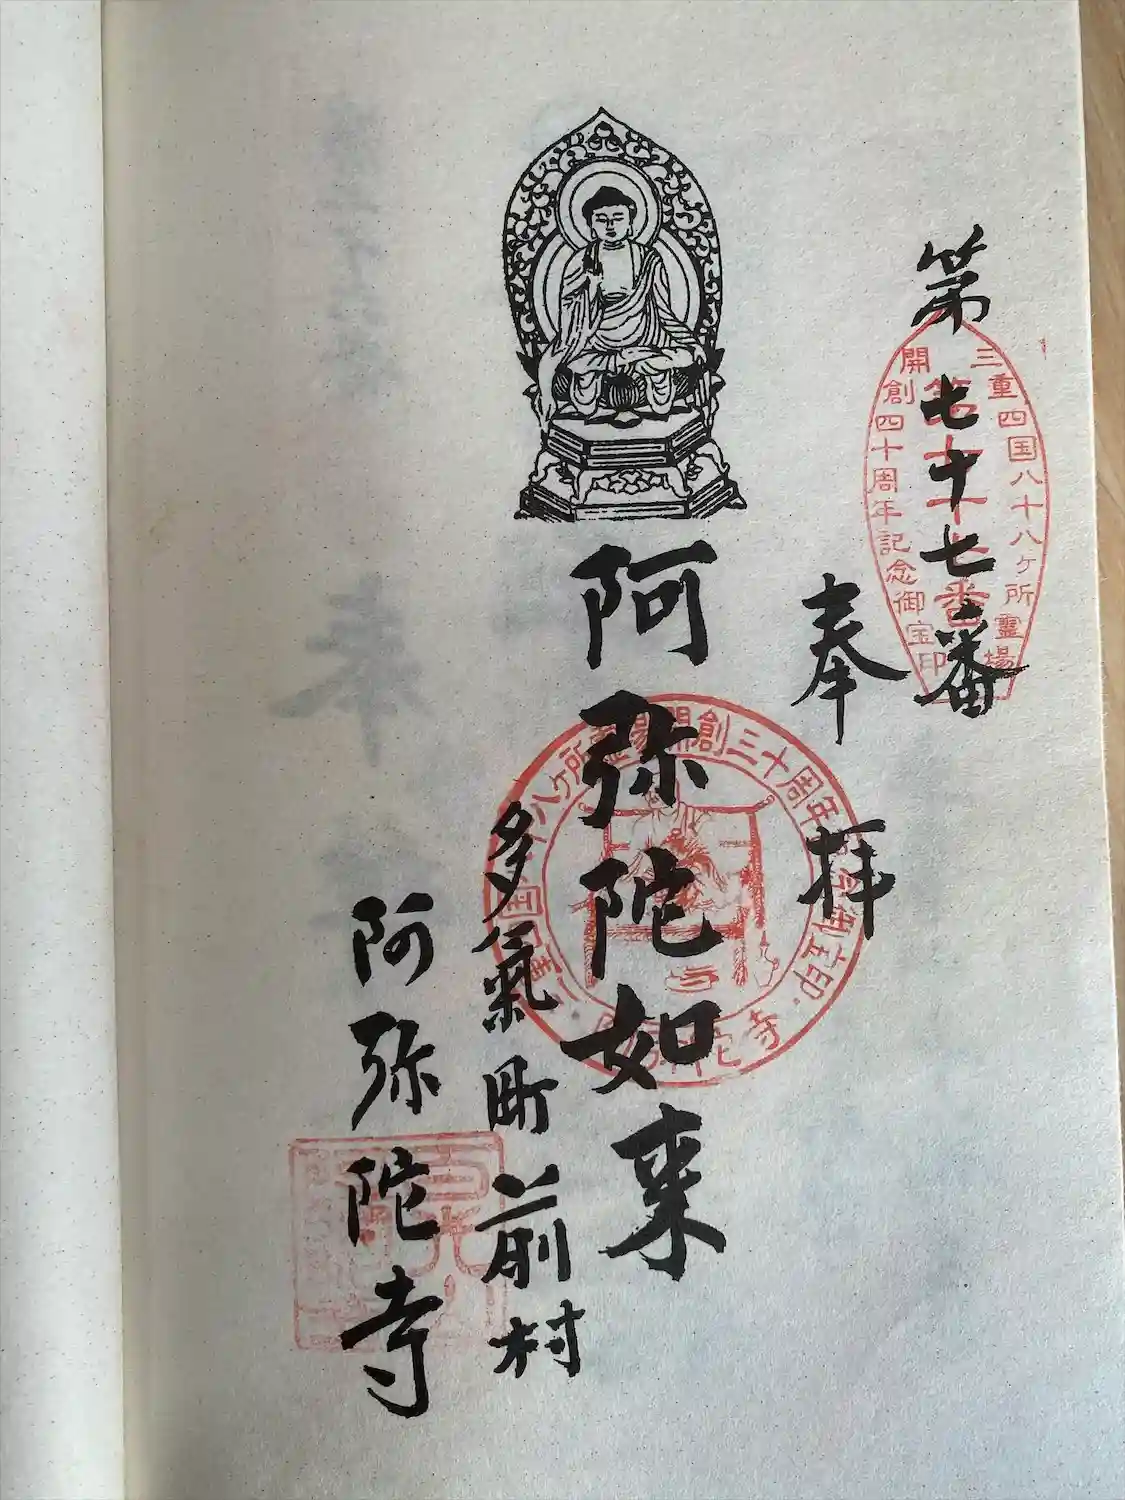 第七十七番
三重四国八十八ヶ所霊場
開創四十周年記念御宝印
第七十七番
奉拝
阿弥陀如来
八ヶ所霊場開創三十周年
阿弥陀寺
多氣町前村
阿弥陀寺